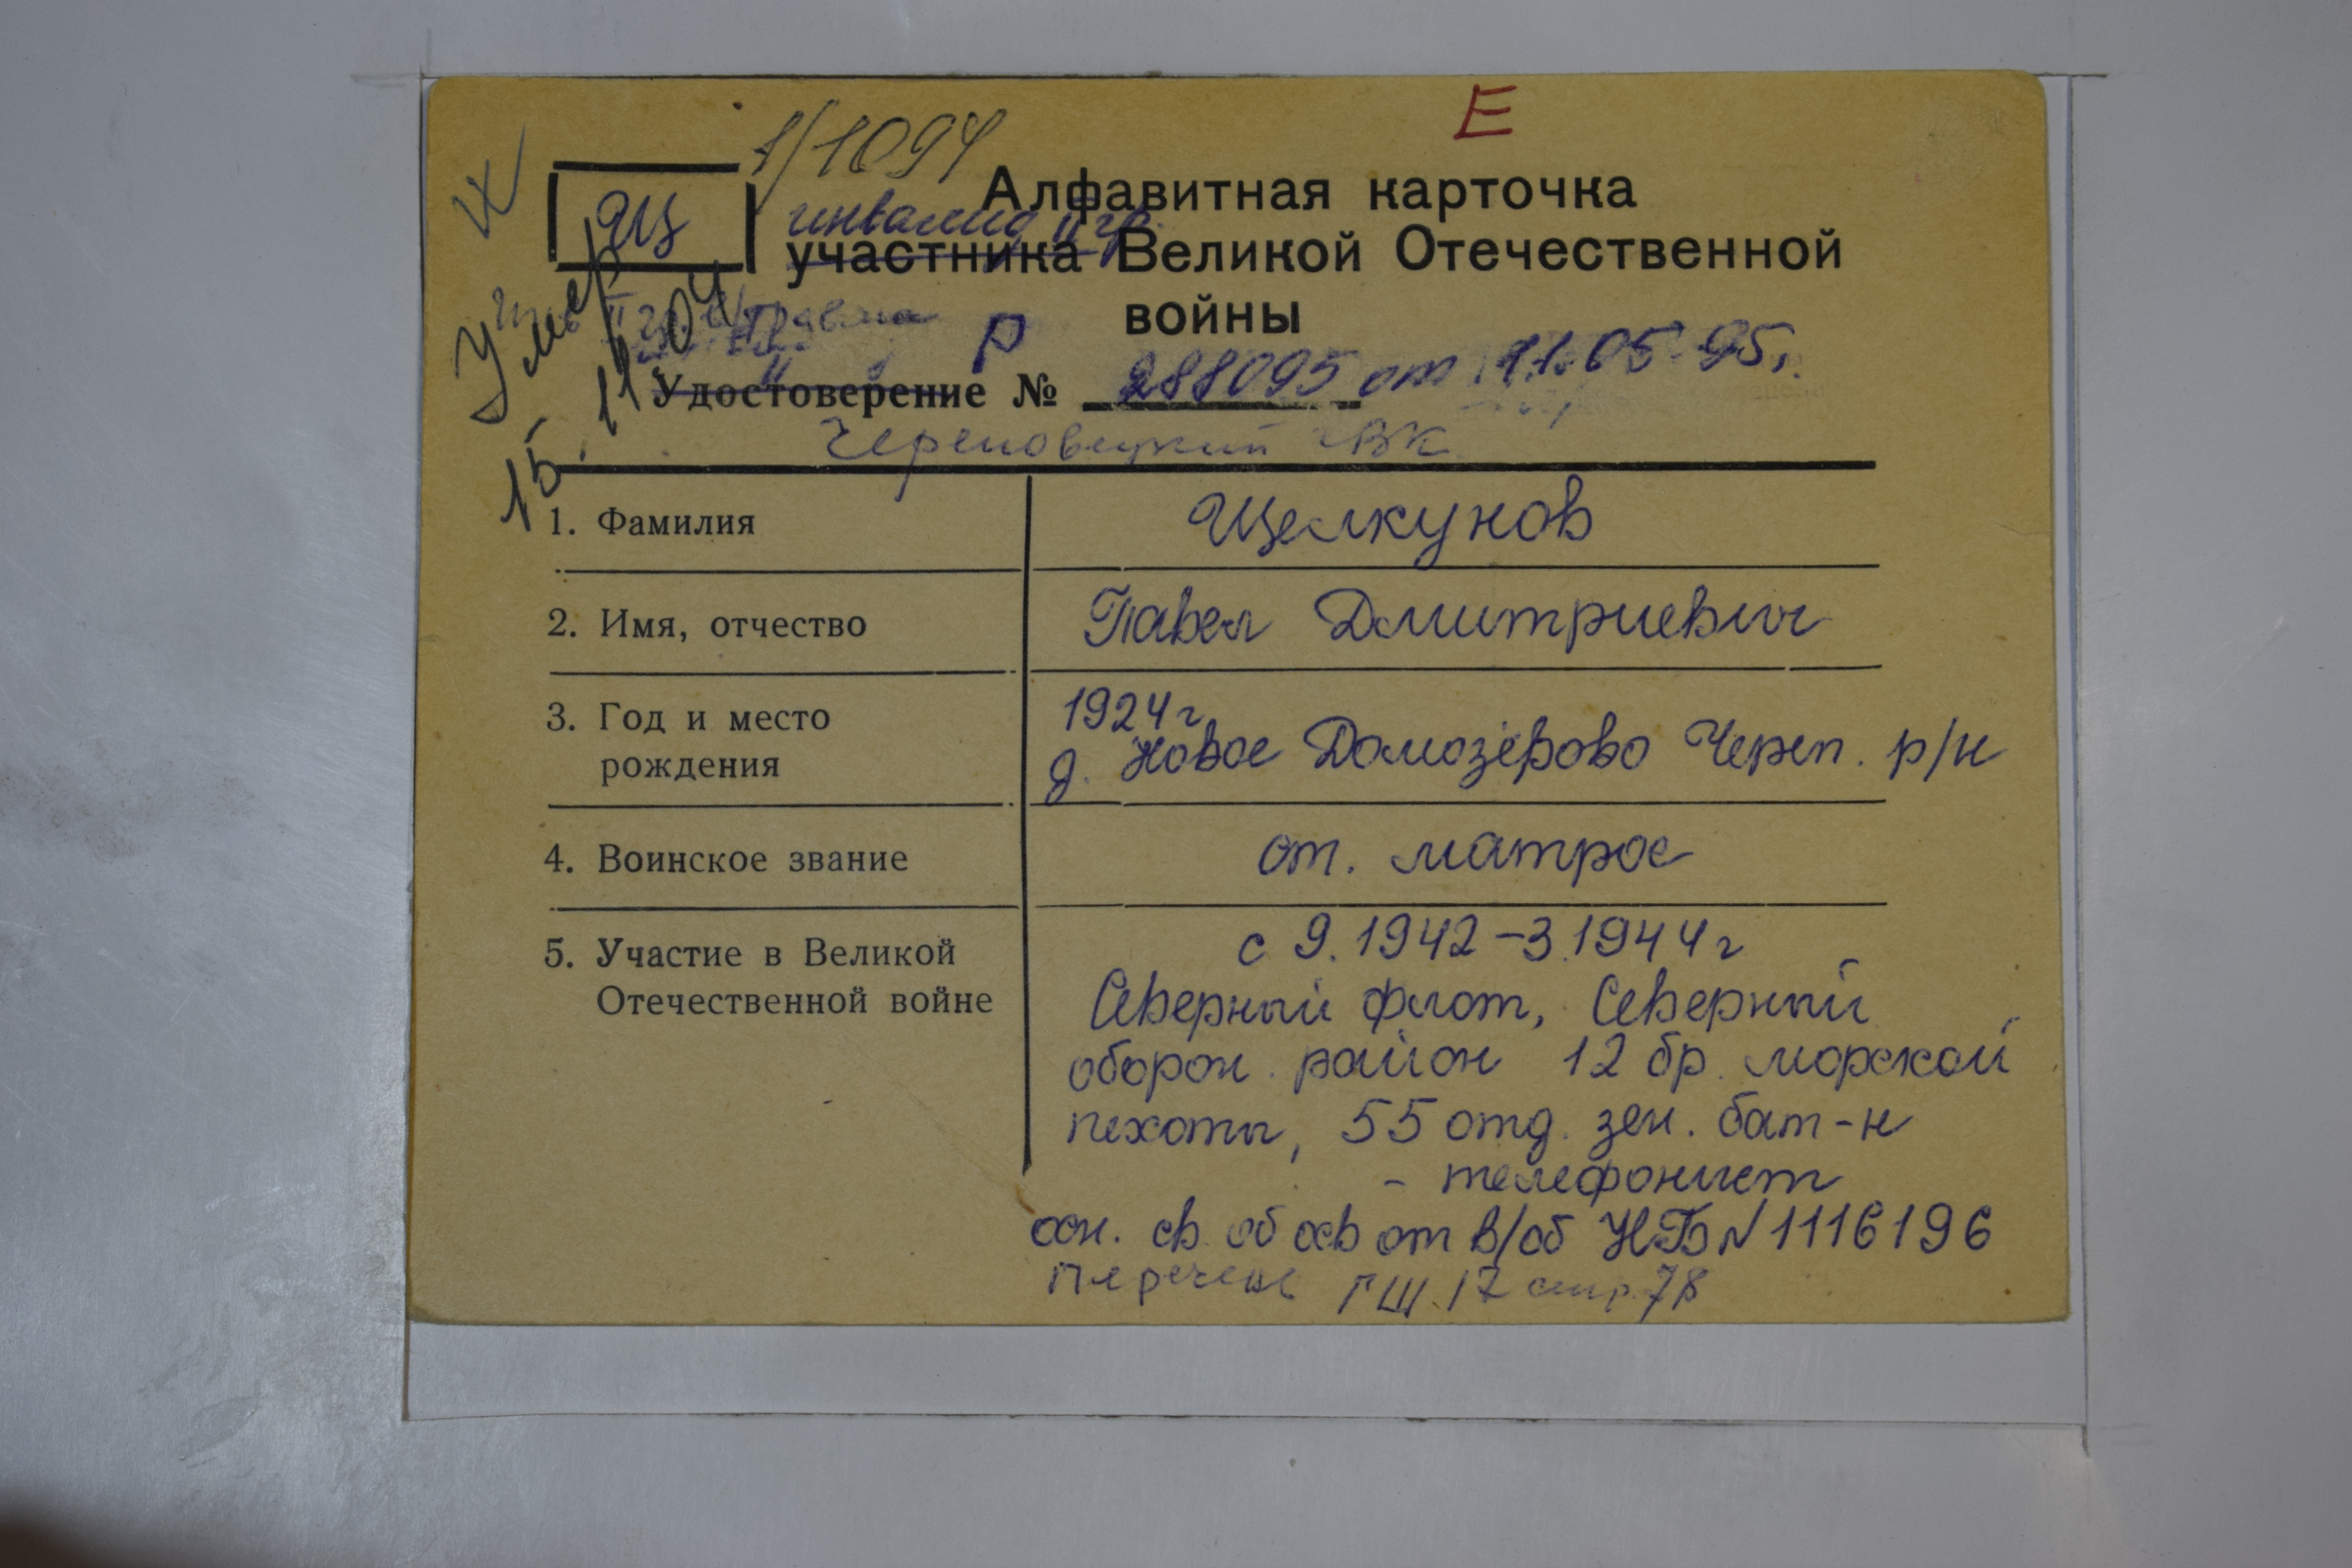 Е
1/1094
Щ
Алфавитная карточка
инвалид II гр.
участника Великой Отечественной
войны
Умер
15.11.04
р
Удостоверение № 288095 от 11.05.95г.
Череповецкий ГВК
1. Фамилия Щелкунов
2. Имя, отчество Павел Дмитриевич
3. Год и место 1924г
рождения д. Новое Домозерово Череп. р/н
4. Воинское звание от. матрос
5. Участие в Великой с 9.1942-3.1944г
Отечественной войне Северный флот, Северный
оборон. район 12 бр. морской
пехоты, 55 отд. зен. бат-н
- телефонист
осн. св. об осв от в/об НБ № 1116196
Перечень ГШ.17 стр.78